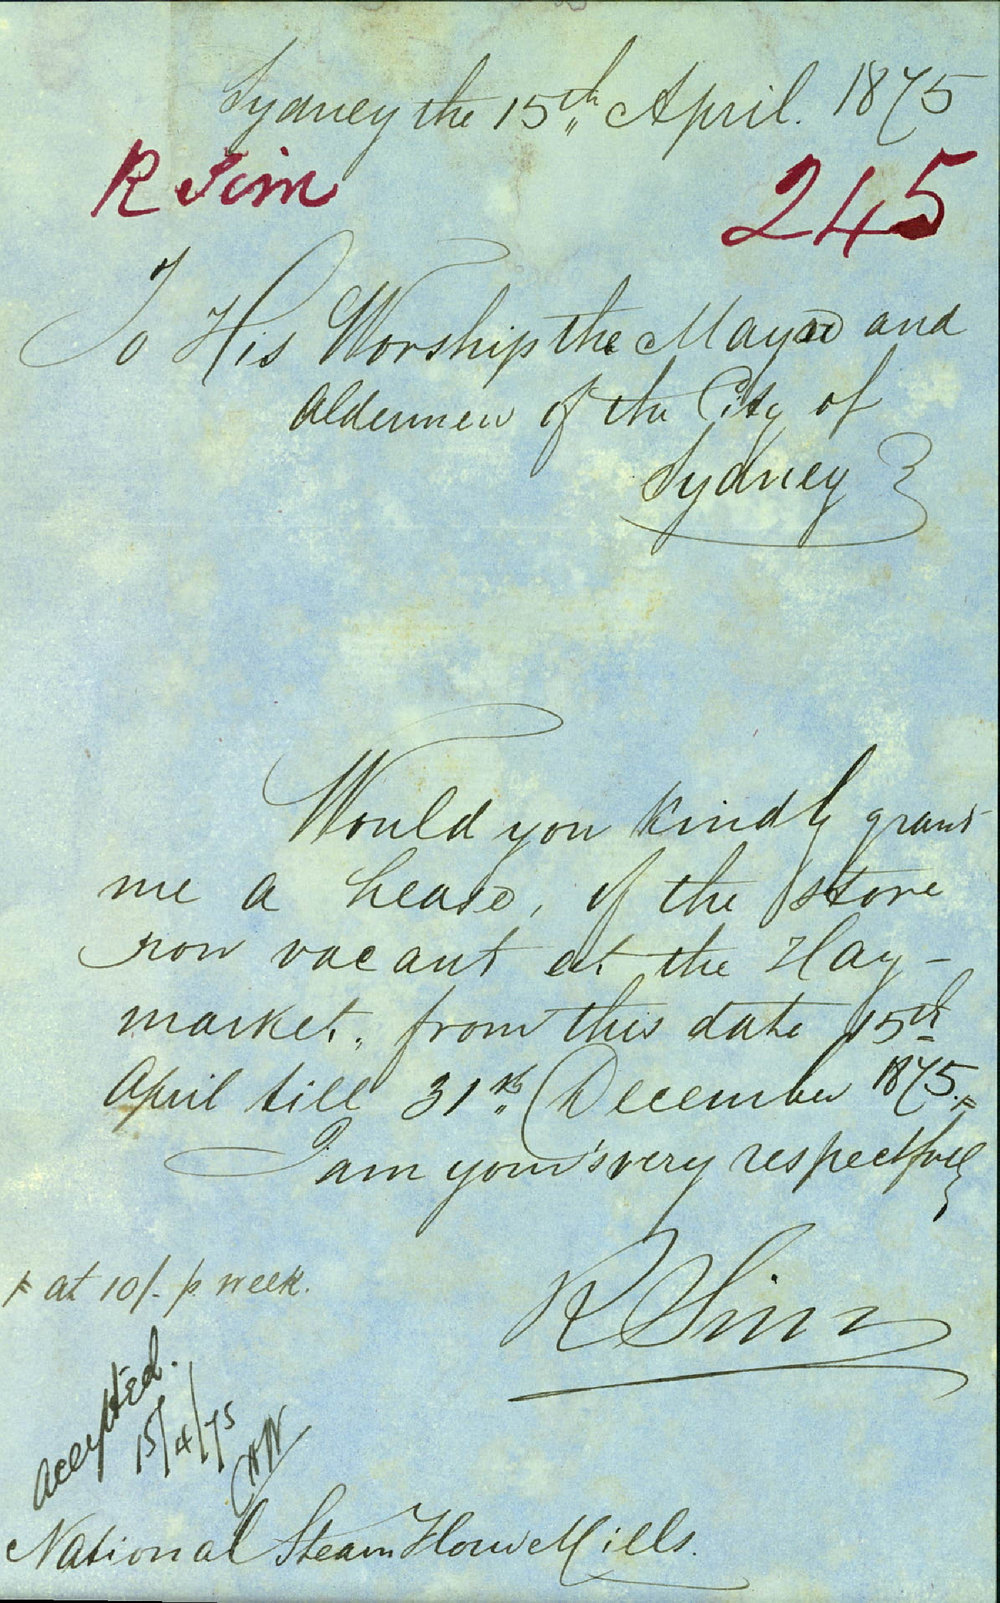 Sydney the 15th April. 1875
R Sim
245
To His Worship the Mayor and
Aldermen of the City of
Sydney
Would you Kindly grant
me a Lease, of the Store
now vacant at the Hay-
market, from this date 15th
April till 31st December 1875.
I am your's very respectfully
R Sim
at 10/- p. week.
Accepted.
15/4/75
National Steam Flour Mills.